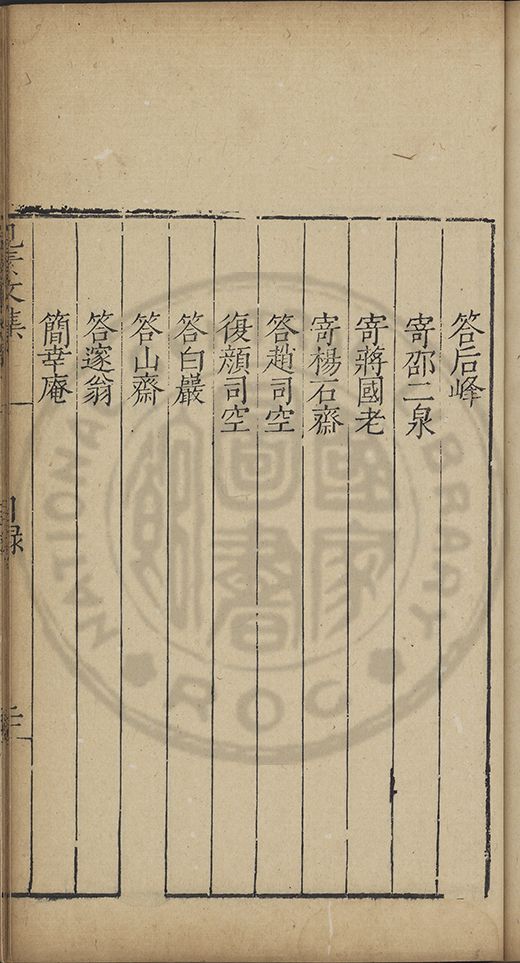 答后峰
寄邵二泉
寄蔣國老
寄楊石齋
答趙司空
復顏司空
答白巖
答山齋
答邃翁
簡幸庵
見素文集
目錄